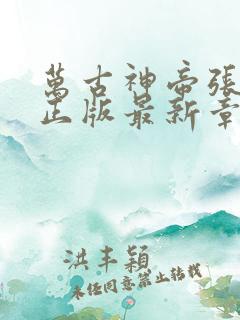 萬古神帝張
正版最新章
洪丰穎
未经同意禁止转载